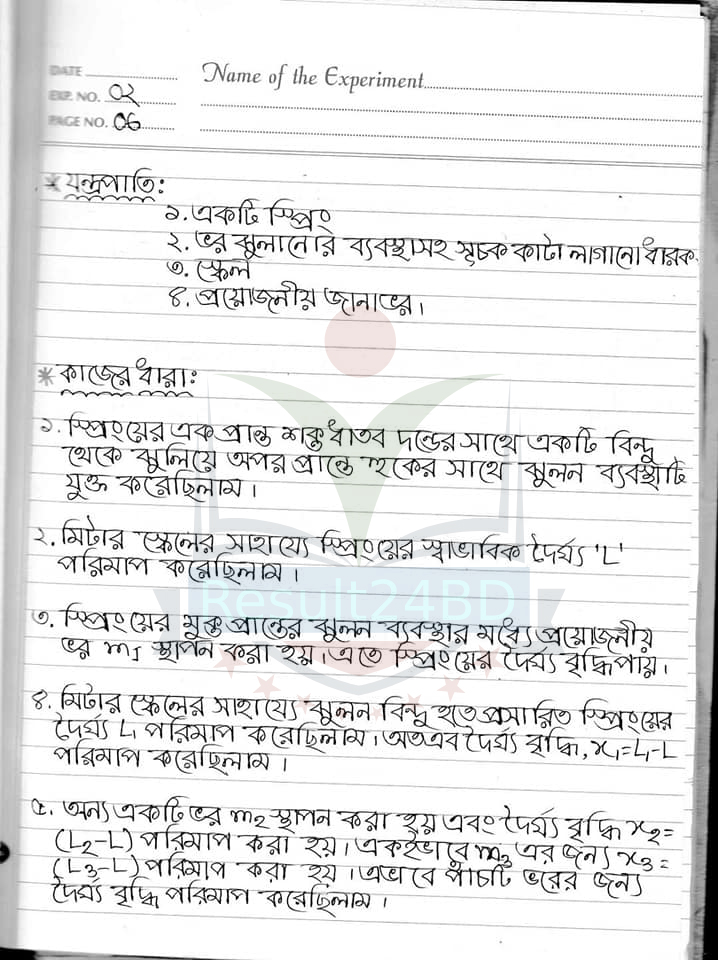 DATE
Name of the Experiment
EXP. NO. 02
PAGE NO. 06
* যন্ত্রপাতি:
১. একটি স্প্রিং
২. ভর ঝুলানোর ব্যবস্থাসহ সূচক কাটা লাগানো ধারক
৩. স্কেল
৪. প্রয়োজনীয় জানাভর।
* কাজের ধারা:
১. স্প্রিংয়ের এক প্রান্ত শক্ত ধাতব দন্ডের সাথে একটি বিন্দু
থেকে ঝুলিয়ে অপর প্রান্তে হুকের সাথে ঝুলন ব্যবস্থাটি
যুক্ত করেছিলাম।
২. মিটার স্কেলের সাহায্যে স্প্রিংয়ের স্বাভাবিক দৈর্ঘ্য 'L'
পরিমাপ করেছিলাম।
Result24BD
৩. স্প্রিংয়ের মুক্ত প্রান্তের ঝুলন ব্যবস্থার মধ্যে প্রয়োজনীয়
ভর m₁ স্থাপন করা হয়। এতে স্প্রিংয়ের দৈর্ঘ্য বৃদ্ধিপায়।
৪. মিটার স্কেলের সাহায্যে ঝুলন বিন্দু হতে প্রসারিত স্প্রিংয়ের
দৈর্ঘ্য L₁ পরিমাপ করেছিলাম। অতএব দৈর্ঘ্য বৃদ্ধি, x₁=L₁-L
পরিমাপ করেছিলাম।
৫. অন্য একটি ভর m₂ স্থাপন করা হয় এবং দৈর্ঘ্য বৃদ্ধি x₂=
(L₂-L) পরিমাপ করা হয়। একইভাবে m₃ এর জন্য x₃=
(L₃-L) পরিমাপ করা হয়। এভাবে পাঁচটি ভরের জন্য
দৈর্ঘ্য বৃদ্ধি পরিমাপ করেছিলাম।